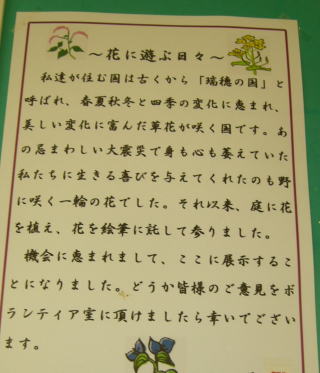 ～花に遊ぶ日々～
私達が住む国は古くから「瑞穂の国」と
呼ばれ、春夏秋冬と四季の変化に恵まれ、
美しい変化に富んだ草花が咲く国です。あ
の忌まわしい大震災で身も心も萎えていた
私たちに生きる喜びを与えてくれたのも野
に咲く一輪の花でした。それ以来、庭に花
を植え、花を絵筆に託して参りました。
機会に恵まれまして、ここに展示するこ
とになりました。どうか皆様のご意見をボ
ランティア室に頂けましたら幸いでござい
ます。